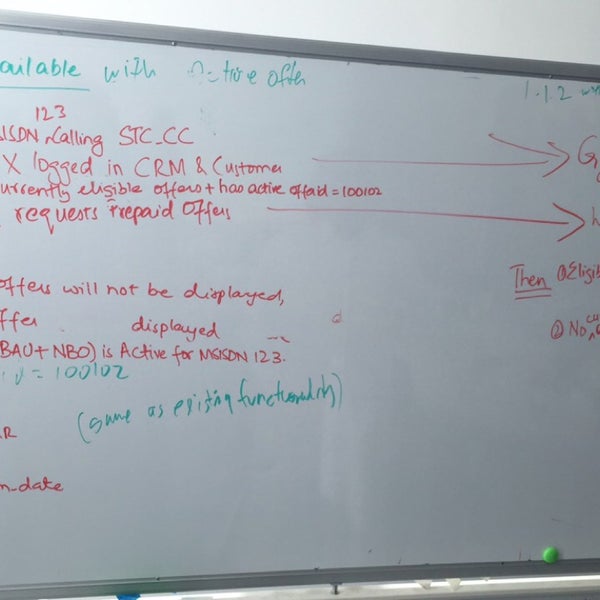 ailable with Active offer
1.1.2
123
SISDN Calling STC_CC
X logged in CRM & Customer
urrently eligible offers + has active offaid = 100102
requests Prepaid Offers
Then ① Eligib
② No,
offers will not be displayed,
ffer displayed
(BAU + NBO) is Active for MSISDN 123.
= 100102
(same as existing functionality)
R
n-date